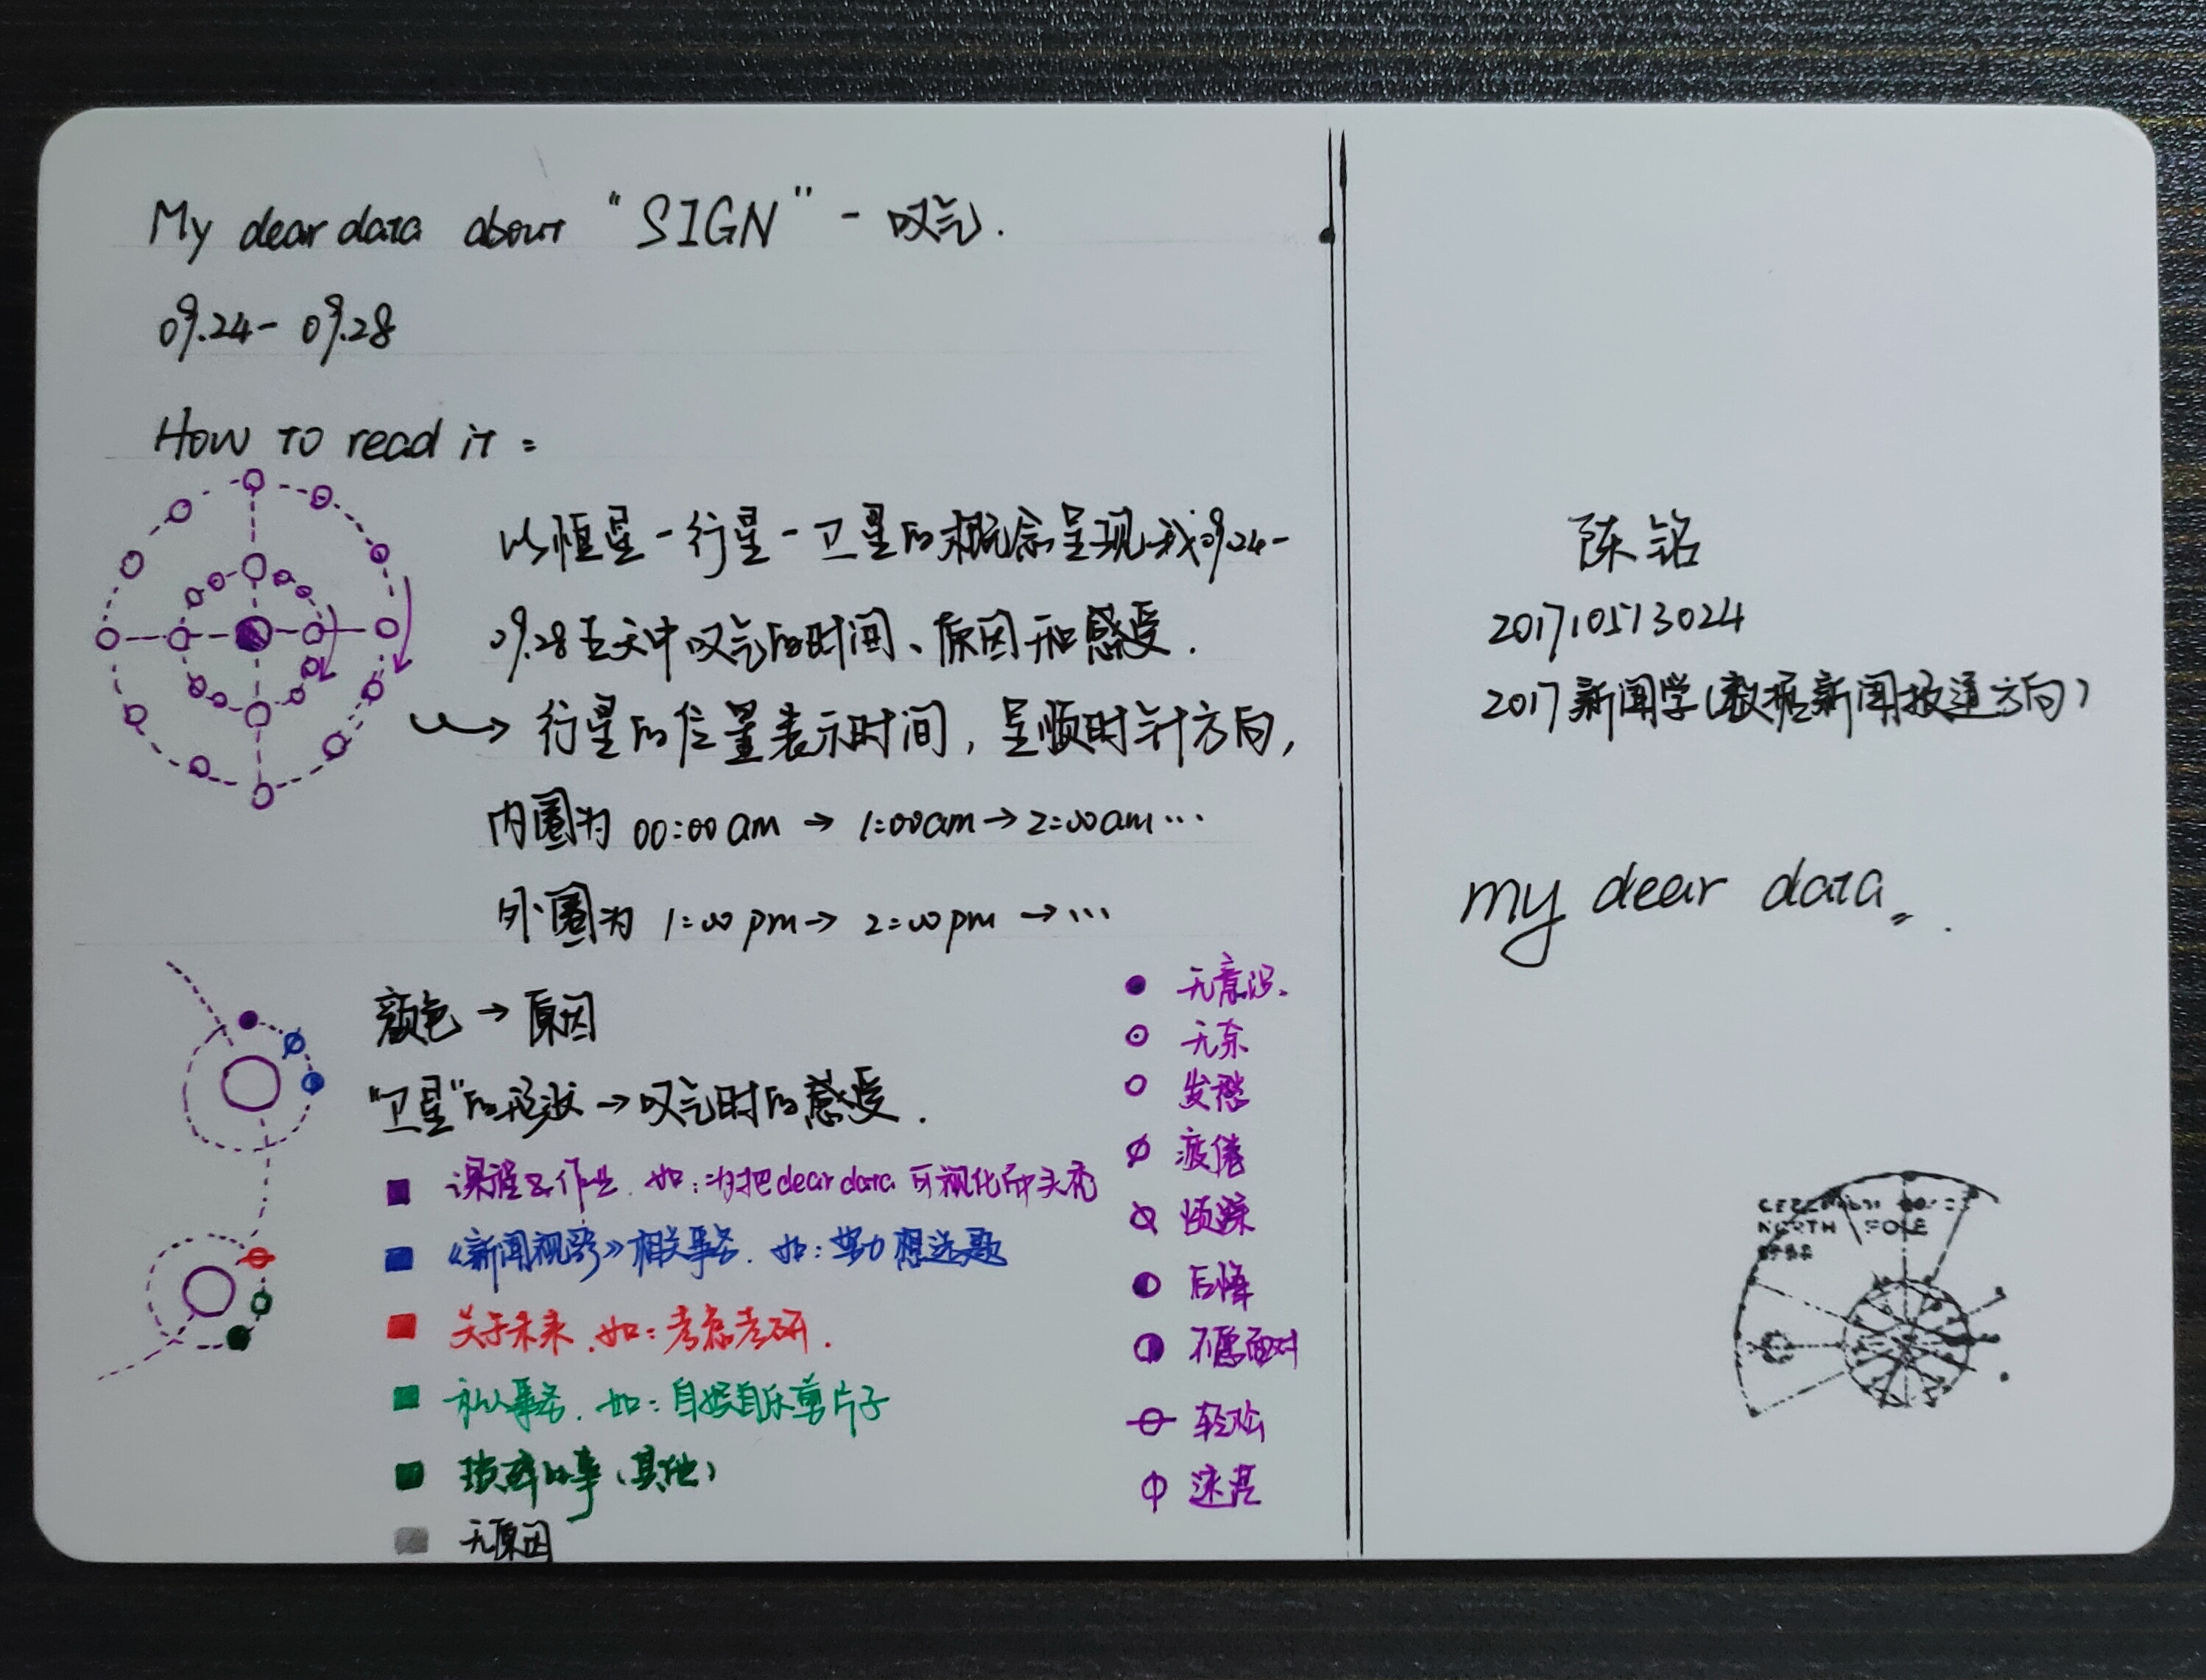 My dear data about "SIGN" - 叹气.
09.24- 09.28
How to read it:
以恒星-行星-卫星的概念呈现我09.24-
09.28五天中叹气的时间、原因和感受.
→ 行星的位置表示时间, 呈顺时针方向,
内圈为 00:00am → 1:00am → 2:00am …
外圈为 1:00pm → 2:00pm → …
颜色 → 原因
"卫星"的形状 → 叹气时的感受.
课程及作业. 如: 为把dear data 可视化而头秃
《新闻视野》相关事务. 如: 努力想选题
关于未来. 如: 考虑考研.
私人事务. 如: 自娱自乐剪片子
琐碎的事 (其他)
无原因
无意识.
无奈
发愁
疲倦
烦躁
后悔
不愿面对
轻松
迷茫
陈铭
201710513024
2017新闻学(数据新闻报道方向)
my dear data.
NORTH POLE